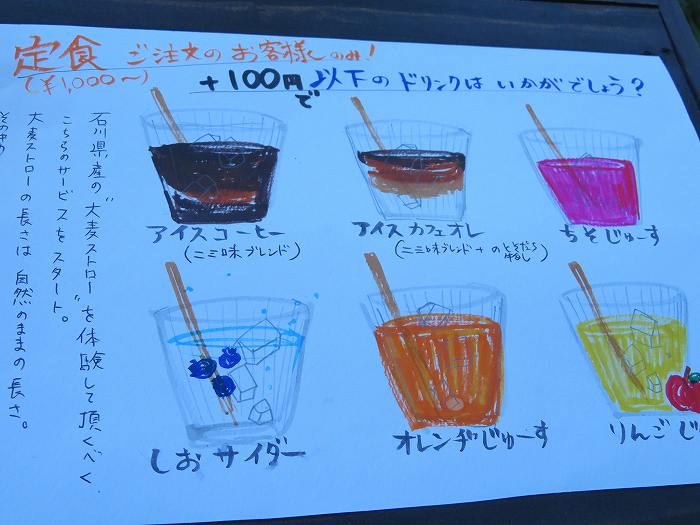 定食 ご注文のお客様のみ!
(¥1,000～)
+100円で以下のドリンクはいかがでしょう?
石川県産の"大麦ストロー"を体験して頂くべく
こちらのサービスをスタート。
大麦ストローの長さは自然のままの長さ。
アイスコーヒー
(二三味ブレンド)
アイスカフェオレ
(二三味ブレンド+のとそだち牛乳)
ちそじゅーす
しおサイダー
オレンヂじゅーす
りんごじ